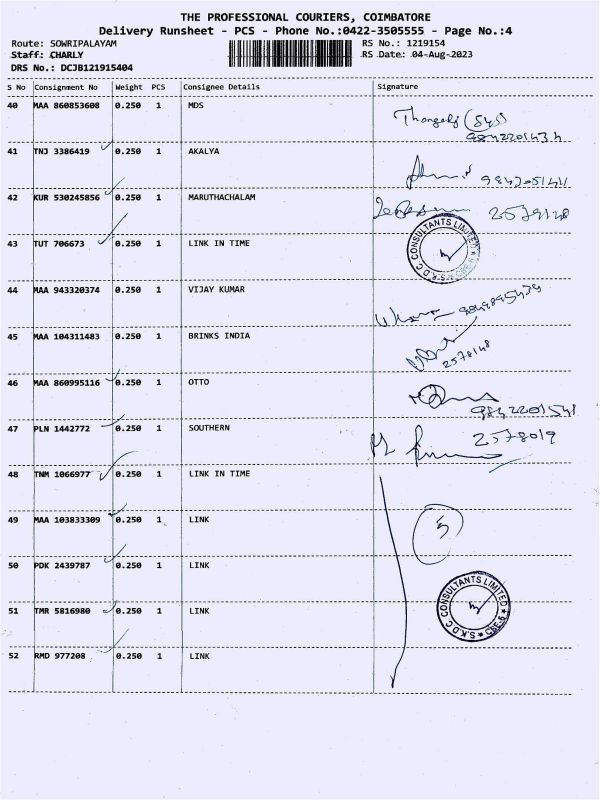 THE PROFESSIONAL COURIERS, COIMBATORE
Delivery Runsheet - PCS - Phone No.:0422-3505555 - Page No.:4
Route: SOWRIPALAYAM RS No.: 1219154
Staff: CHARLY RS Date: 04-Aug-2023
DRS No.: DCJB121915404
S No Consignment No Weight PCS Consignee Details Signature
40 MAA 860853608 0.250 1 MDS
9842201434
41 TNJ 3386419 0.250 1 AKALYA
42 KUR 530245856 0.250 1 MARUTHACHALAM
2578148
43 TUT 706673 0.250 1 LINK IN TIME
S.K.D.C CONSULTANTS LIMITED
44 MAA 943320374 0.250 1 VIJAY KUMAR
45 MAA 104311483 0.250 1 BRINKS INDIA
2578148
46 MAA 860995116 0.250 1 OTTO
9842201541
47 PLN 1442772 0.250 1 SOUTHERN
2578019
48 TNM 1066977 0.250 1 LINK IN TIME
49 MAA 103833309 0.250 1 LINK
5
50 PDK 2439787 0.250 1 LINK
51 TMR 5816980 0.250 1 LINK
S.K.D.C CONSULTANTS LIMITED ★ CBE-6 ★
52 RMD 977208 0.250 1 LINK